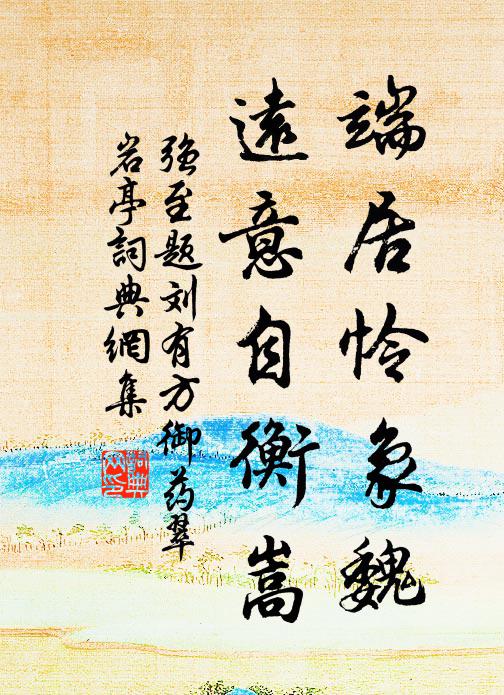 端居怜象魏
遠意自衡嵩
强至题刘有方御药翠
岩亭詞典網集